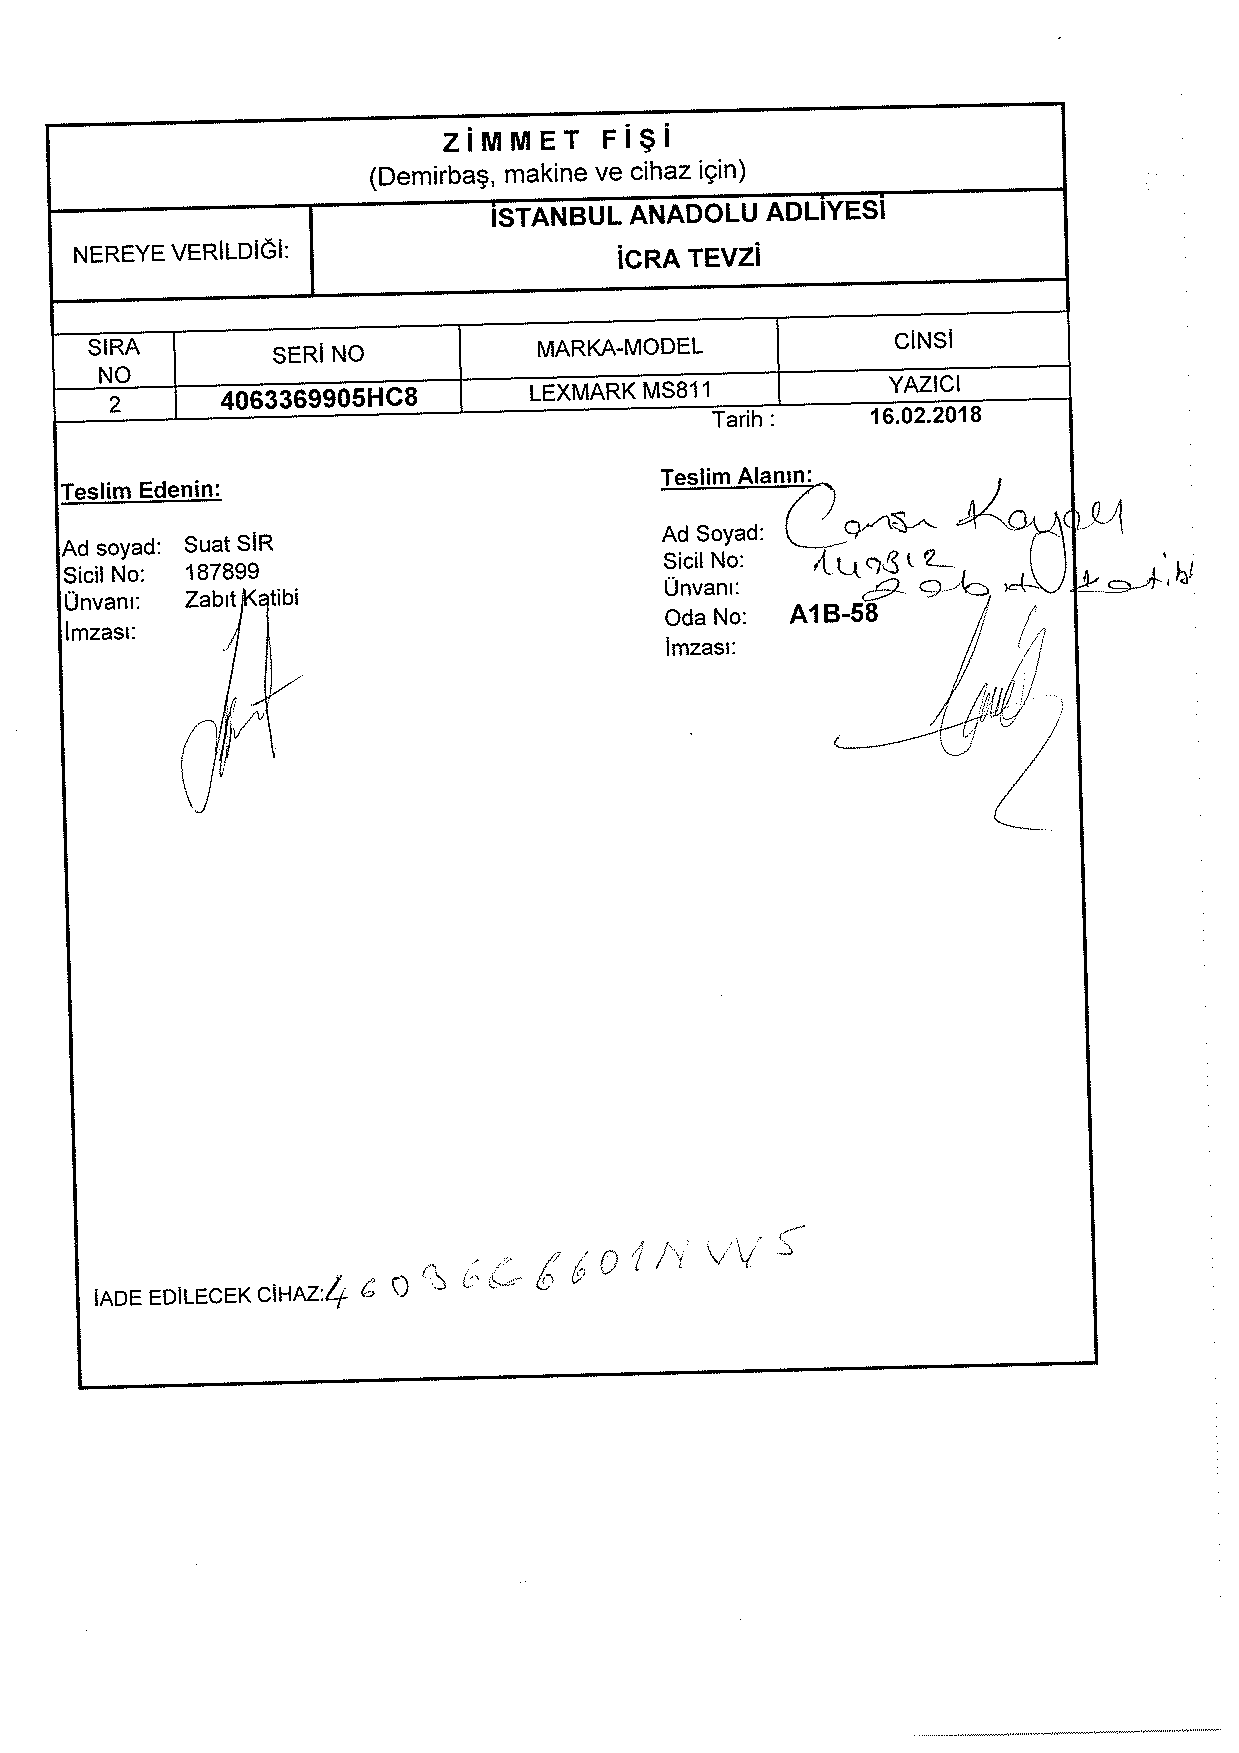 ZİMMET FİŞİ
(Demirbaş, makine ve cihaz için)
NEREYE VERİLDİĞİ:
İSTANBUL ANADOLU ADLİYESİ
İCRA TEVZİ
SIRA NO SERİ NO MARKA-MODEL CİNSİ
2 4063369905HC8 LEXMARK MS811 YAZICI
Tarih : 16.02.2018
Teslim Edenin:
Ad soyad: Suat SİR
Sicil No: 187899
Ünvanı: Zabıt Katibi
İmzası:
Teslim Alanın:
Ad Soyad:
Sicil No:
Ünvanı: Zabıt Katibi
Oda No: A1B-58
İmzası:
İADE EDİLECEK CİHAZ: